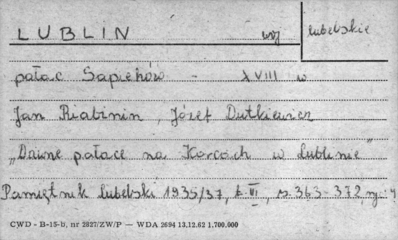 LUBLIN woj lubelskie
pałac Sapiehów - XVIII w
Jan Riabinin, Józef Dutkiewicz
„Dawne pałace na Korcach w Lublinie"
Pamiętnik lubelski 1935/37, t. III, s. 343-372
CWD - B-15-b, nr 2827/ZW/P — WDA 2694 13.12.62 1.700.000